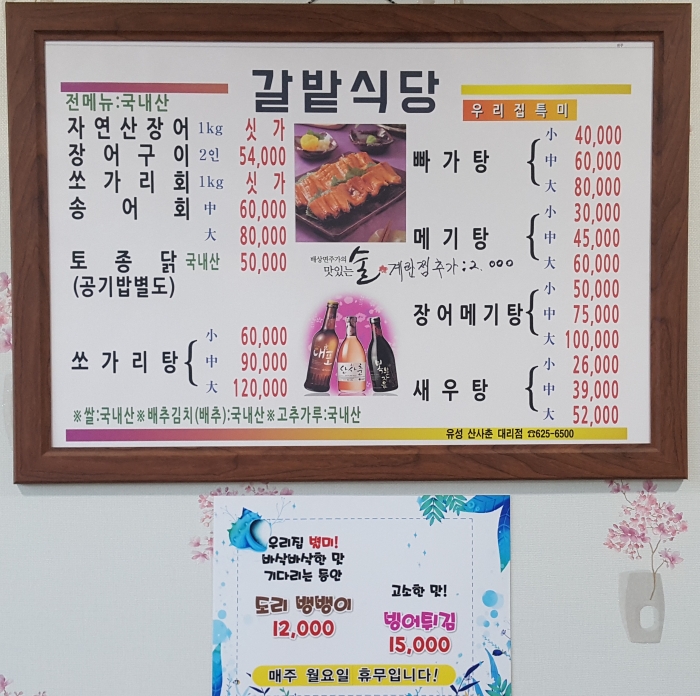 갈밭식당
전메뉴:국내산
자연산장어 1kg 싯가
장어구이 2인 54,000
쏘가리회 1kg 싯가
송어회 中 60,000
大 80,000
토종닭 국내산 50,000
(공기밥별도)
쏘가리탕 小 60,000
中 90,000
大 120,000
배상면주가의
맛있는 술
계란찜추가:2,000
우리집특미
빠가탕 小 40,000
中 60,000
大 80,000
메기탕 小 30,000
中 45,000
大 60,000
장어메기탕 小 50,000
中 75,000
大 100,000
새우탕 小 26,000
中 39,000
大 52,000
※쌀:국내산※배추김치(배추):국내산※고추가루:국내산
유성 산사춘 대리점 ☎625-6500
우리집 별미!
바삭바삭한 맛
기다리는 동안
도리 뱅뱅이
12,000
고소한 맛!
빙어튀김
15,000
매주 월요일 휴무입니다!